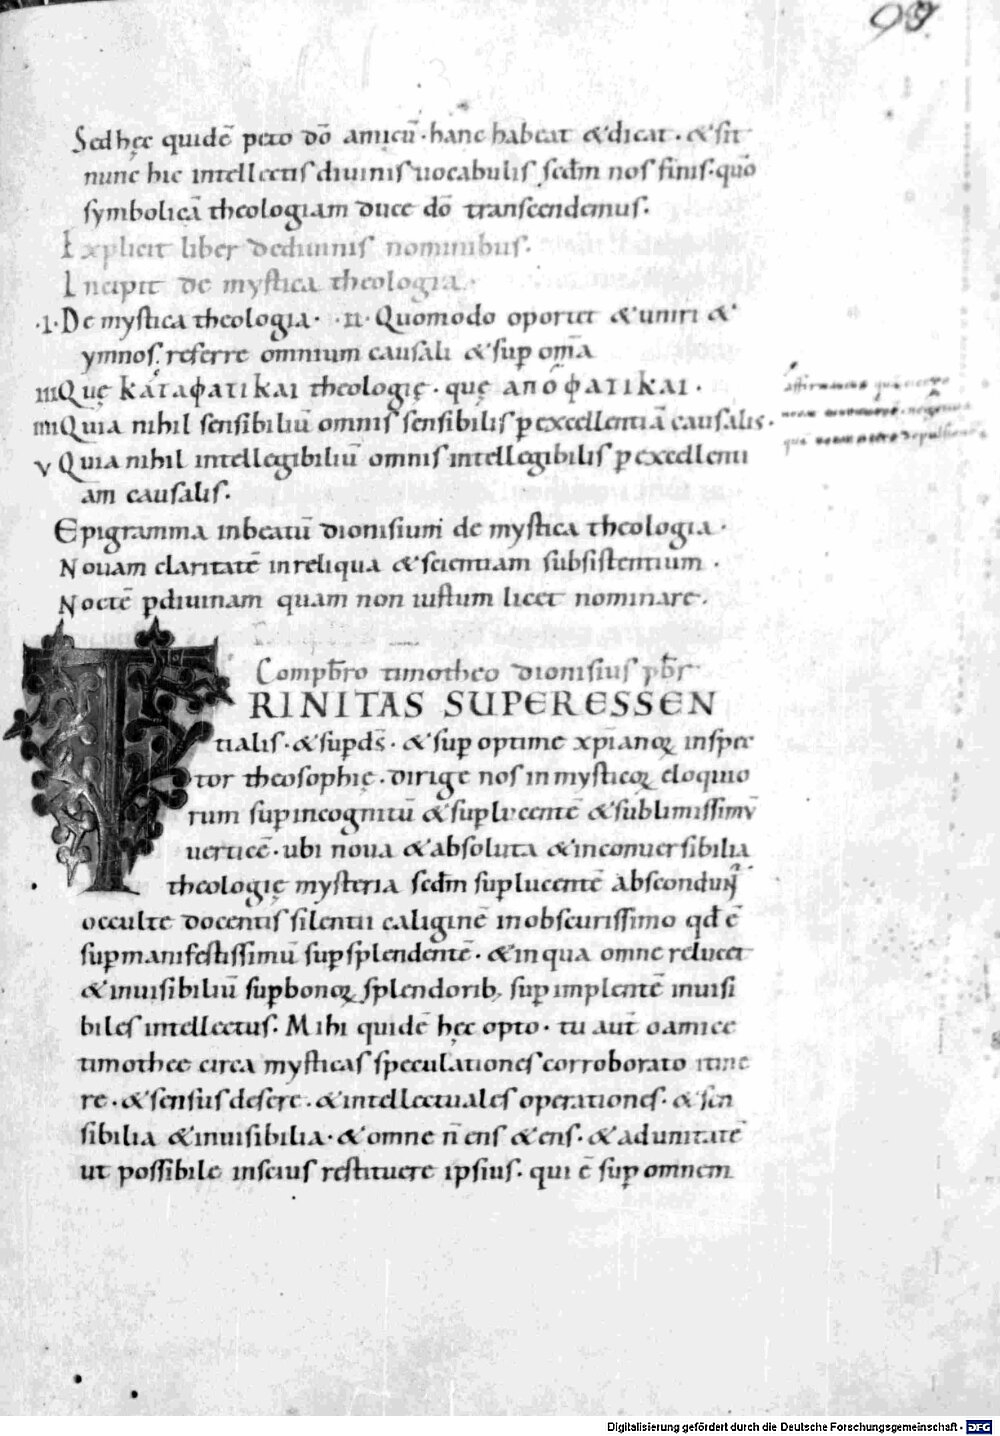 99
Sed hęc quidē peto dō amicū · hanc habeat & dicat · & sit
nunc hic intellectis diuinis uocabulis sedm nos finis · quō
symbolicā theologiam duce dō transcendemus.
Explicit liber de diuinis nominibus.
Incipit de mystica theologia.
·I· De mystica theologia · ·II· Quomodo oportet & uniri &
ymnos referre omnium causali & sup omīa
III Quę ΚΑΤΑΦΑΤΙΚΑΙ theologię · quę ΑΠΟΦΑΤΙΚΑΙ ·
IIII Quia nihil sensibiliū omnis sensibilis p excellentiā causalis ·
V Quia nihil intellegibiliū omnis intellegibilis p excellenti
am causalis.
Epigramma in beatū dionisium de mystica theologia ·
Nouam claritatē in reliqua & scientiam subsistentium ·
Noctē p diuinam quam non iustum licet nominare.
Compb̄ro timotheo dionisius pb̄r
TRINITAS SUPERESSEN
tialis · & supds̄ · & sup optime xp̄ianoꝝ inspec
tor theosophię · dirige nos in mysticoꝝ eloquio
rum sup incognitū & suplucentē & sublimissimū
uerticē · ubi noua & absoluta & inconuersibilia
theologię mysteria sedm suplucentē absconduntʼ
occulte docentis silentii caliginē in obscurissimo qđ ē
supmanifestissimū supsplendentē · & in qua omne relucet
& inuisibiliū supbonoꝝ splendorib; supimplentē inuisi
biles intellectus. Mihi quidē hęc opto · tu aut̄ o amice
timothee circa mysticas speculationes corroborato itine
re · & sensus desere · & intellectuales operationes · & sen
sibilia & inuisibilia · & omne n̄ ens & ens · & ad unitatē
ut possibile inscius restituere ipsius · qui ē sup omnem
Digitalisierung gefördert durch die Deutsche Forschungsgemeinschaft - DFG